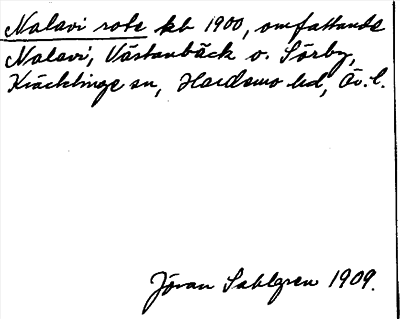 Nalavi rote kb 1900, omfattande
Nalavi, Västanbäck o. Sörby,
Kräcklinge sn, Hardemo hd, Ör. l.
Jöran Sahlgren 1909.